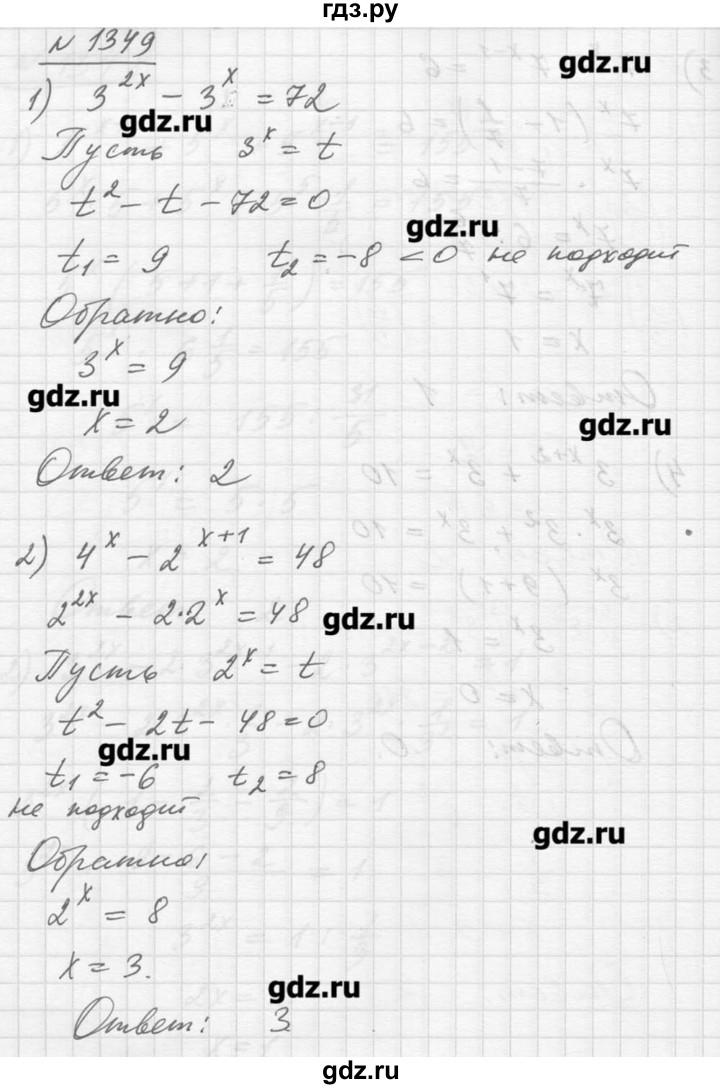 гдз.ру
N 1349
gdz.ru
1) 3^{2x} - 3^x = 72
gdz.ru
Пусть 3^x = t
t^2 - t - 72 = 0
gdz.ru
t_1 = 9 t_2 = -8 < 0 не подходит
Обратно:
3^x = 9
gdz.ru
x = 2
gdz.ru
Ответ: 2
2) 4^x - 2^{x+1} = 48
2^{2x} - 2·2^x = 48
gdz.ru
Пусть 2^x = t
t^2 - 2t - 48 = 0
gdz.ru
t_1 = -6 t_2 = 8
не подходит
gdz.ru
Обратно:
2^x = 8
x = 3.
gdz.ru
Ответ: 3
gdz.ru